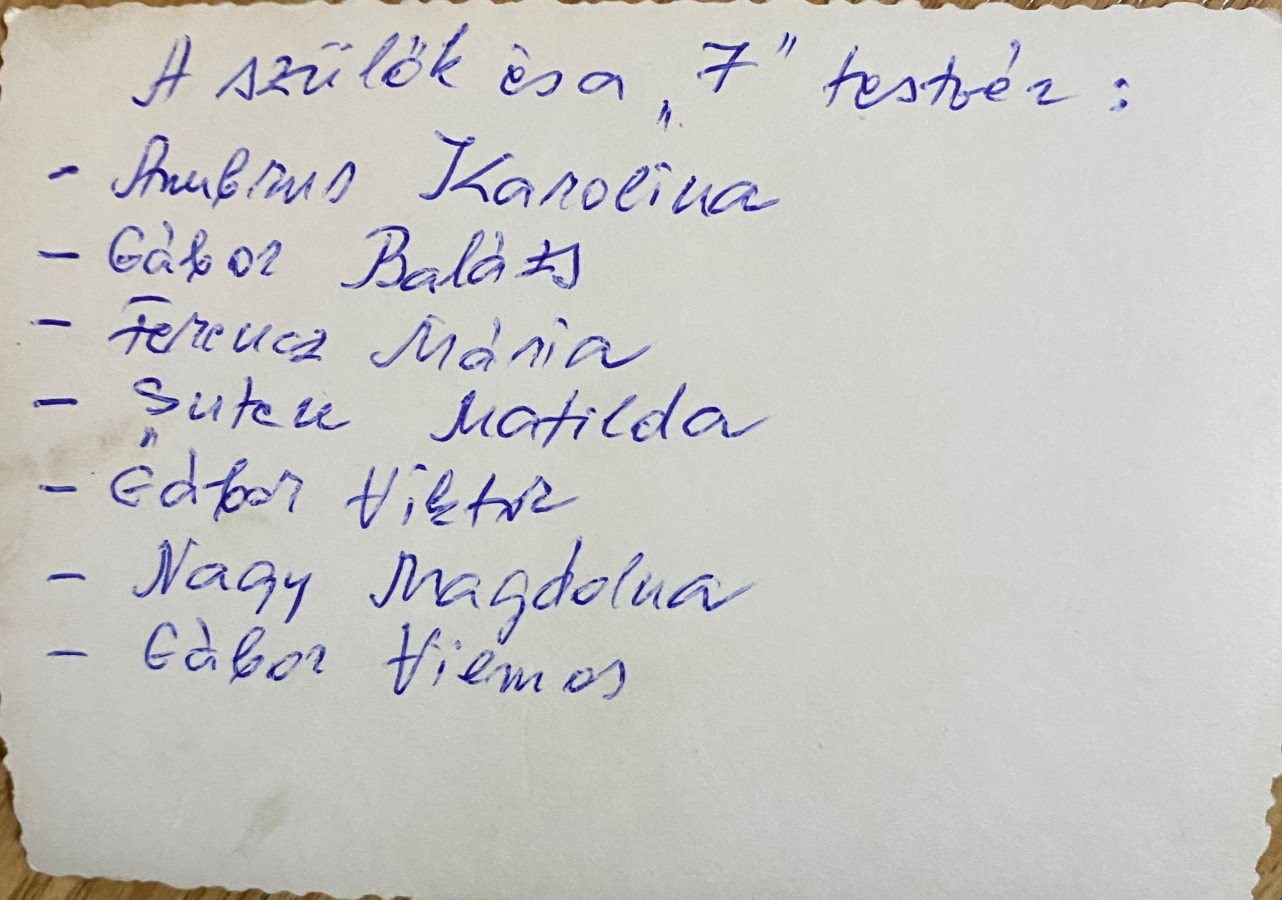 A szülők és a „7" testvér:
- Ambrus Karolina
- Gábor Balázs
- Ferencz Mária
- Šuteu Matilda
- Gábor Viktor
- Nagy Magdolna
- Gábor Vilmos